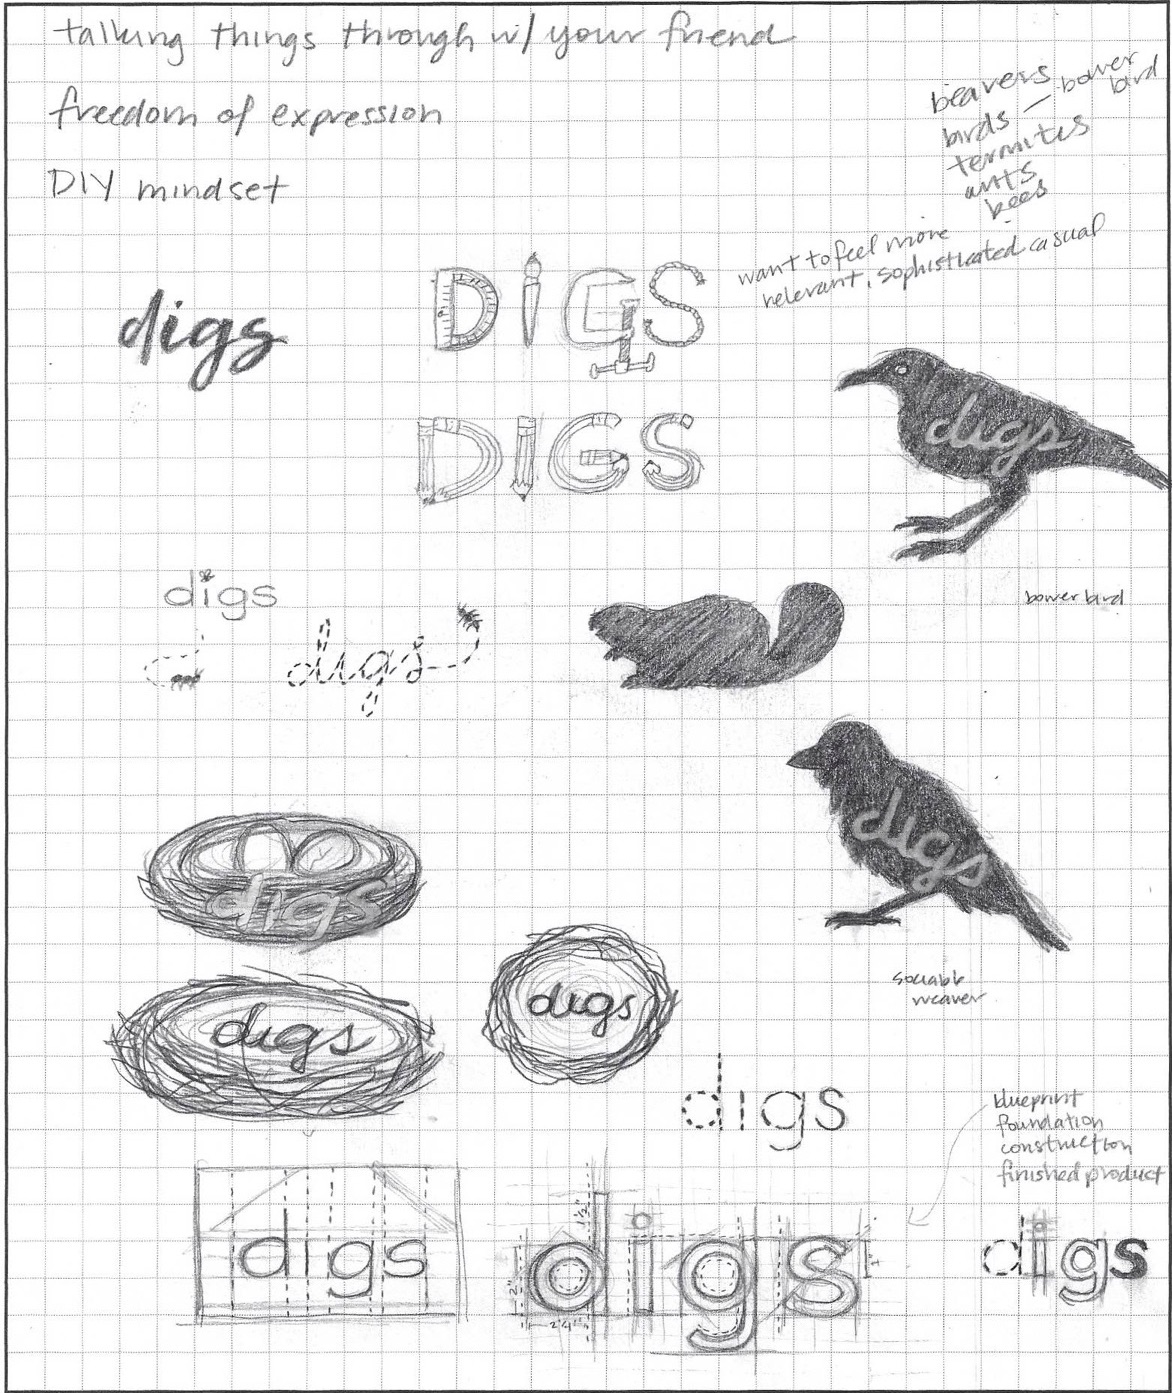 talking things through w/ your friend
freedom of expression
DIY mindset
beavers
birds — bower bird
termites
ants
bees
want to feel more
relevant, sophisticated casual
digs
DIGS
DIGS
digs
digs
digs
d
digs
bower bird
digs
digs
sociable
weaver
digs
digs
digs
blueprint
foundation
construction
finished product
digs
digs
1 1/2"
2"
2 1/4"
1"
digs